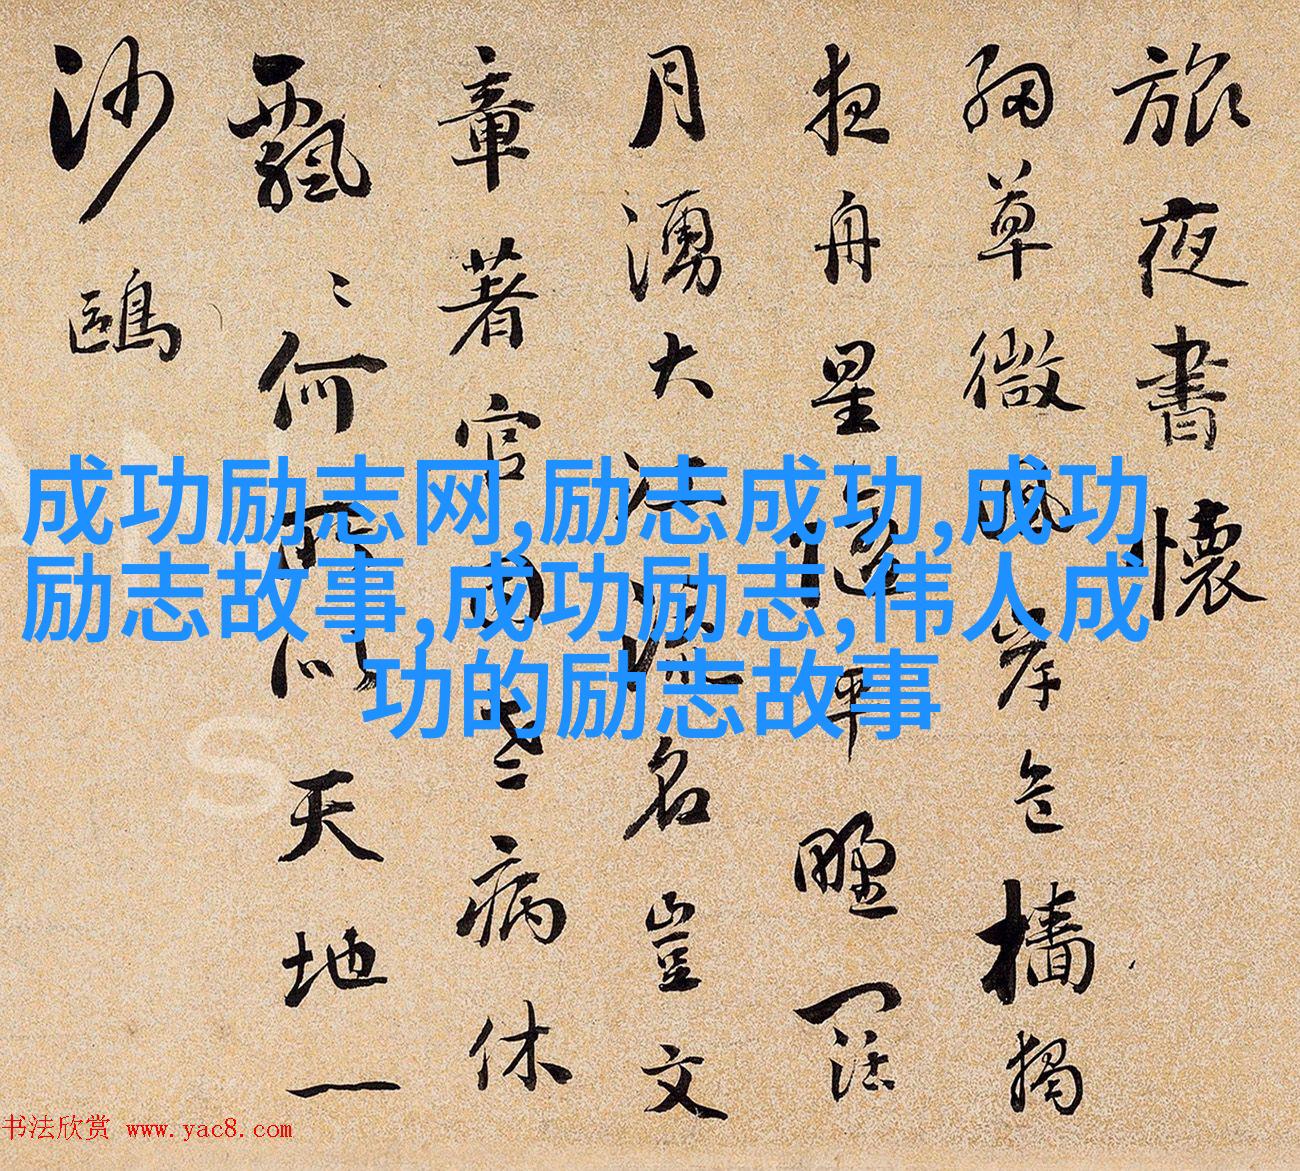 旅夜書懷
細草微風岸危檣獨
夜舟星隨平野闊
月湧大江流名豈文
章著官因老病休
飄〻何所似天地一
沙鷗
成功励志网,励志成功,成功
励志故事,成功励志,伟人成
功的励志故事
书法欣赏 www.yac8.com